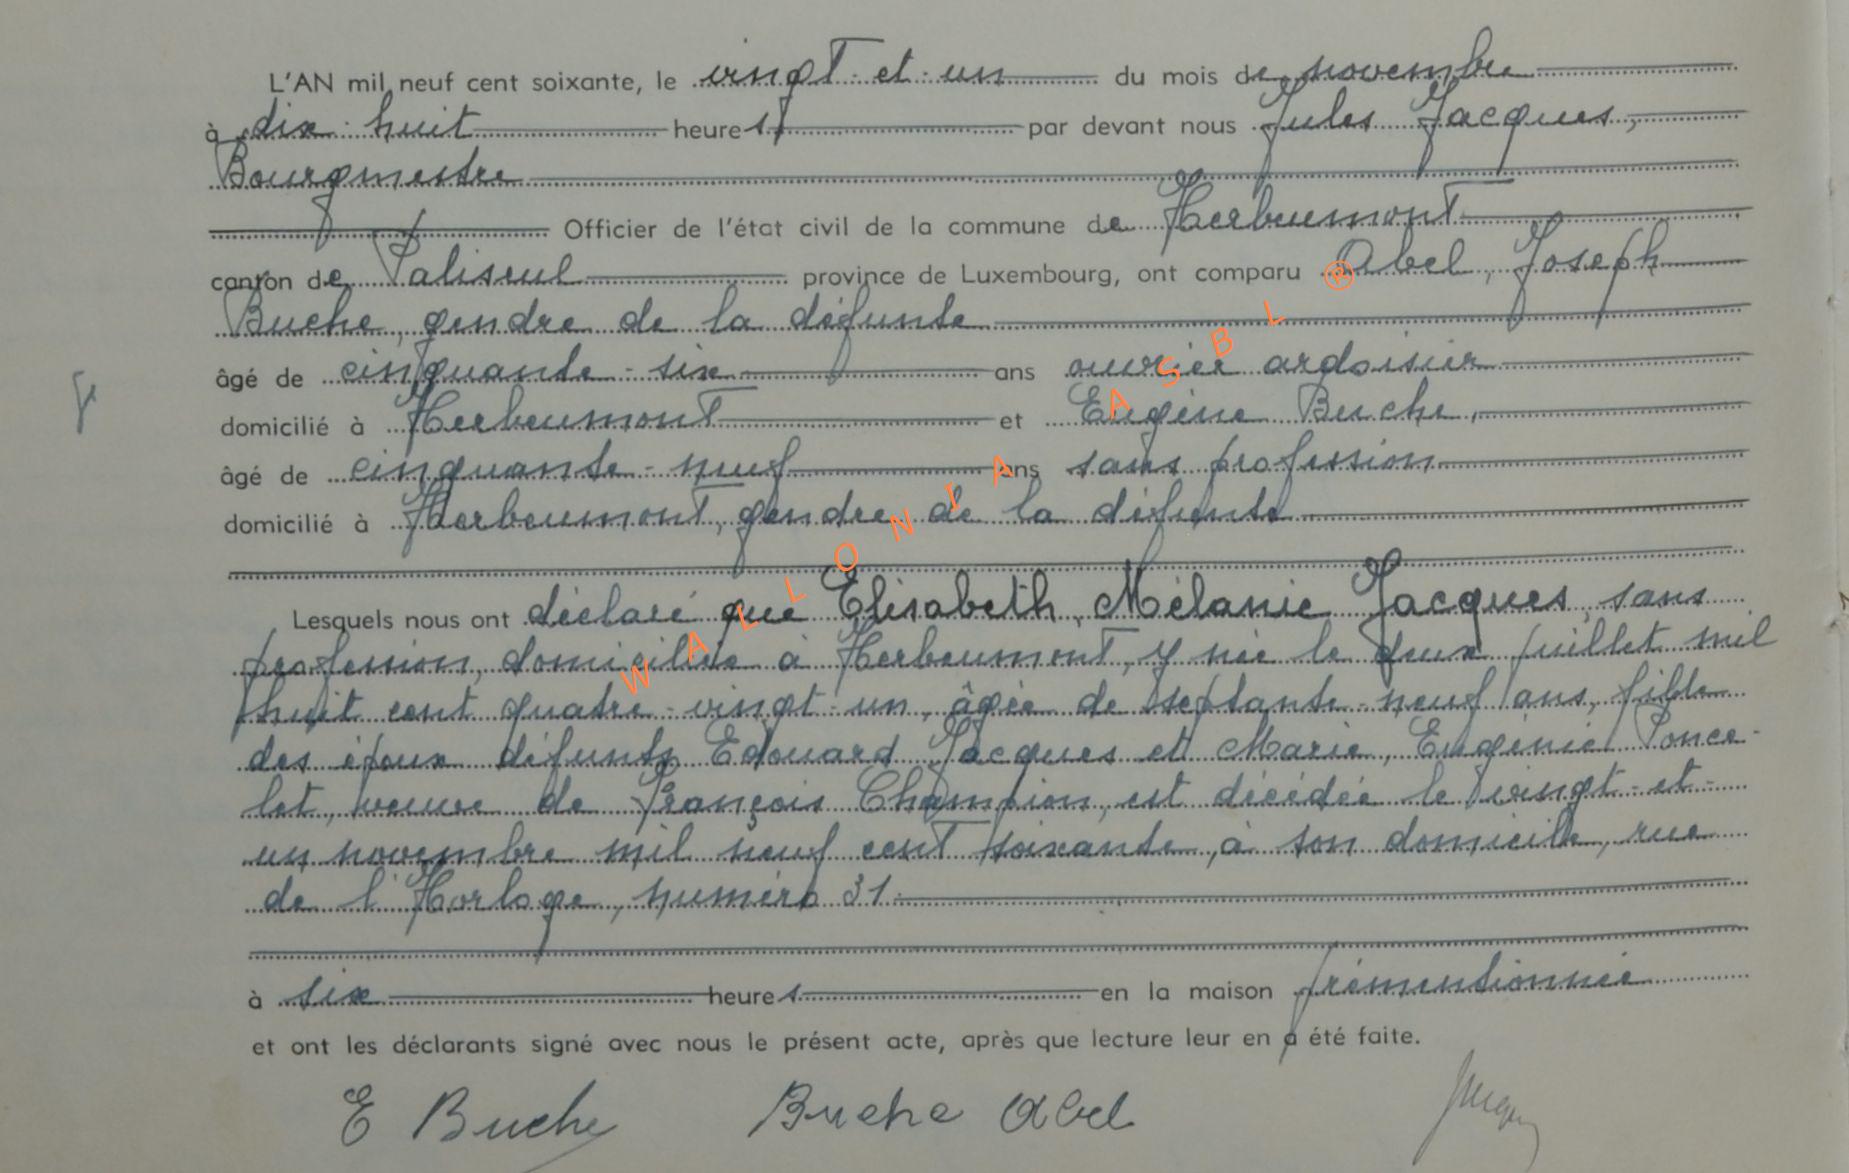 L'AN mil neuf cent soixante, le vingt et un du mois de novembre
à dix-huit heures par devant nous Jules Jacques,
Bourgmestre
Officier de l'état civil de la commune de Herbeumont
canton de Paliseul province de Luxembourg, ont comparu Abel, Joseph
Buche, gendre de la défunte
âgé de cinquante-six ans ouvrier ardoisier
domicilié à Herbeumont et Eugène Buche,
âgé de cinquante-neuf ans sans profession
domicilié à Herbeumont, gendre de la défunte
Lesquels nous ont déclaré que Elisabeth, Mélanie Jacques, sans
profession, domiciliée à Herbeumont, y née le deux juillet mil
huit cent quatre-vingt-un, âgée de septante-neuf ans, fille
des époux défunts Edouard Jacques et Marie, Eugénie Ponce-
let, veuve de François Champion, est décédée le vingt-et-
un novembre mil neuf cent soixante, à son domicile, rue
de l'Horloge, numéro 31.
à six heures en la maison prémentionnée
et ont les déclarants signé avec nous le présent acte, après que lecture leur en a été faite.
E Buche Buche Abel
WALLONIA ASBL ®